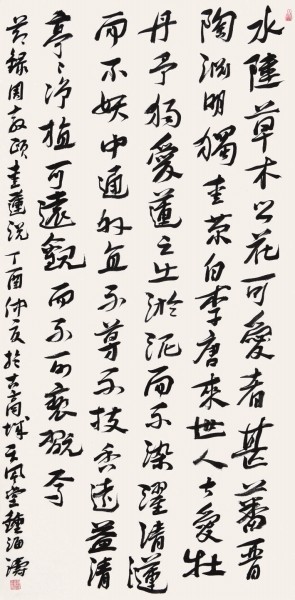 水陸草木之花可愛者甚蕃晋
陶渊明獨爱菊自李唐來世人大愛牡
丹予獨愛蓮之出淤泥而不染濯清漣
而不妖中通外直不蔓不枝香遠益清
亭亭净植可遠觀而不可褻翫焉
節録周敦頤爱蓮说丁酉仲夏於古商城風堂鍾海濤